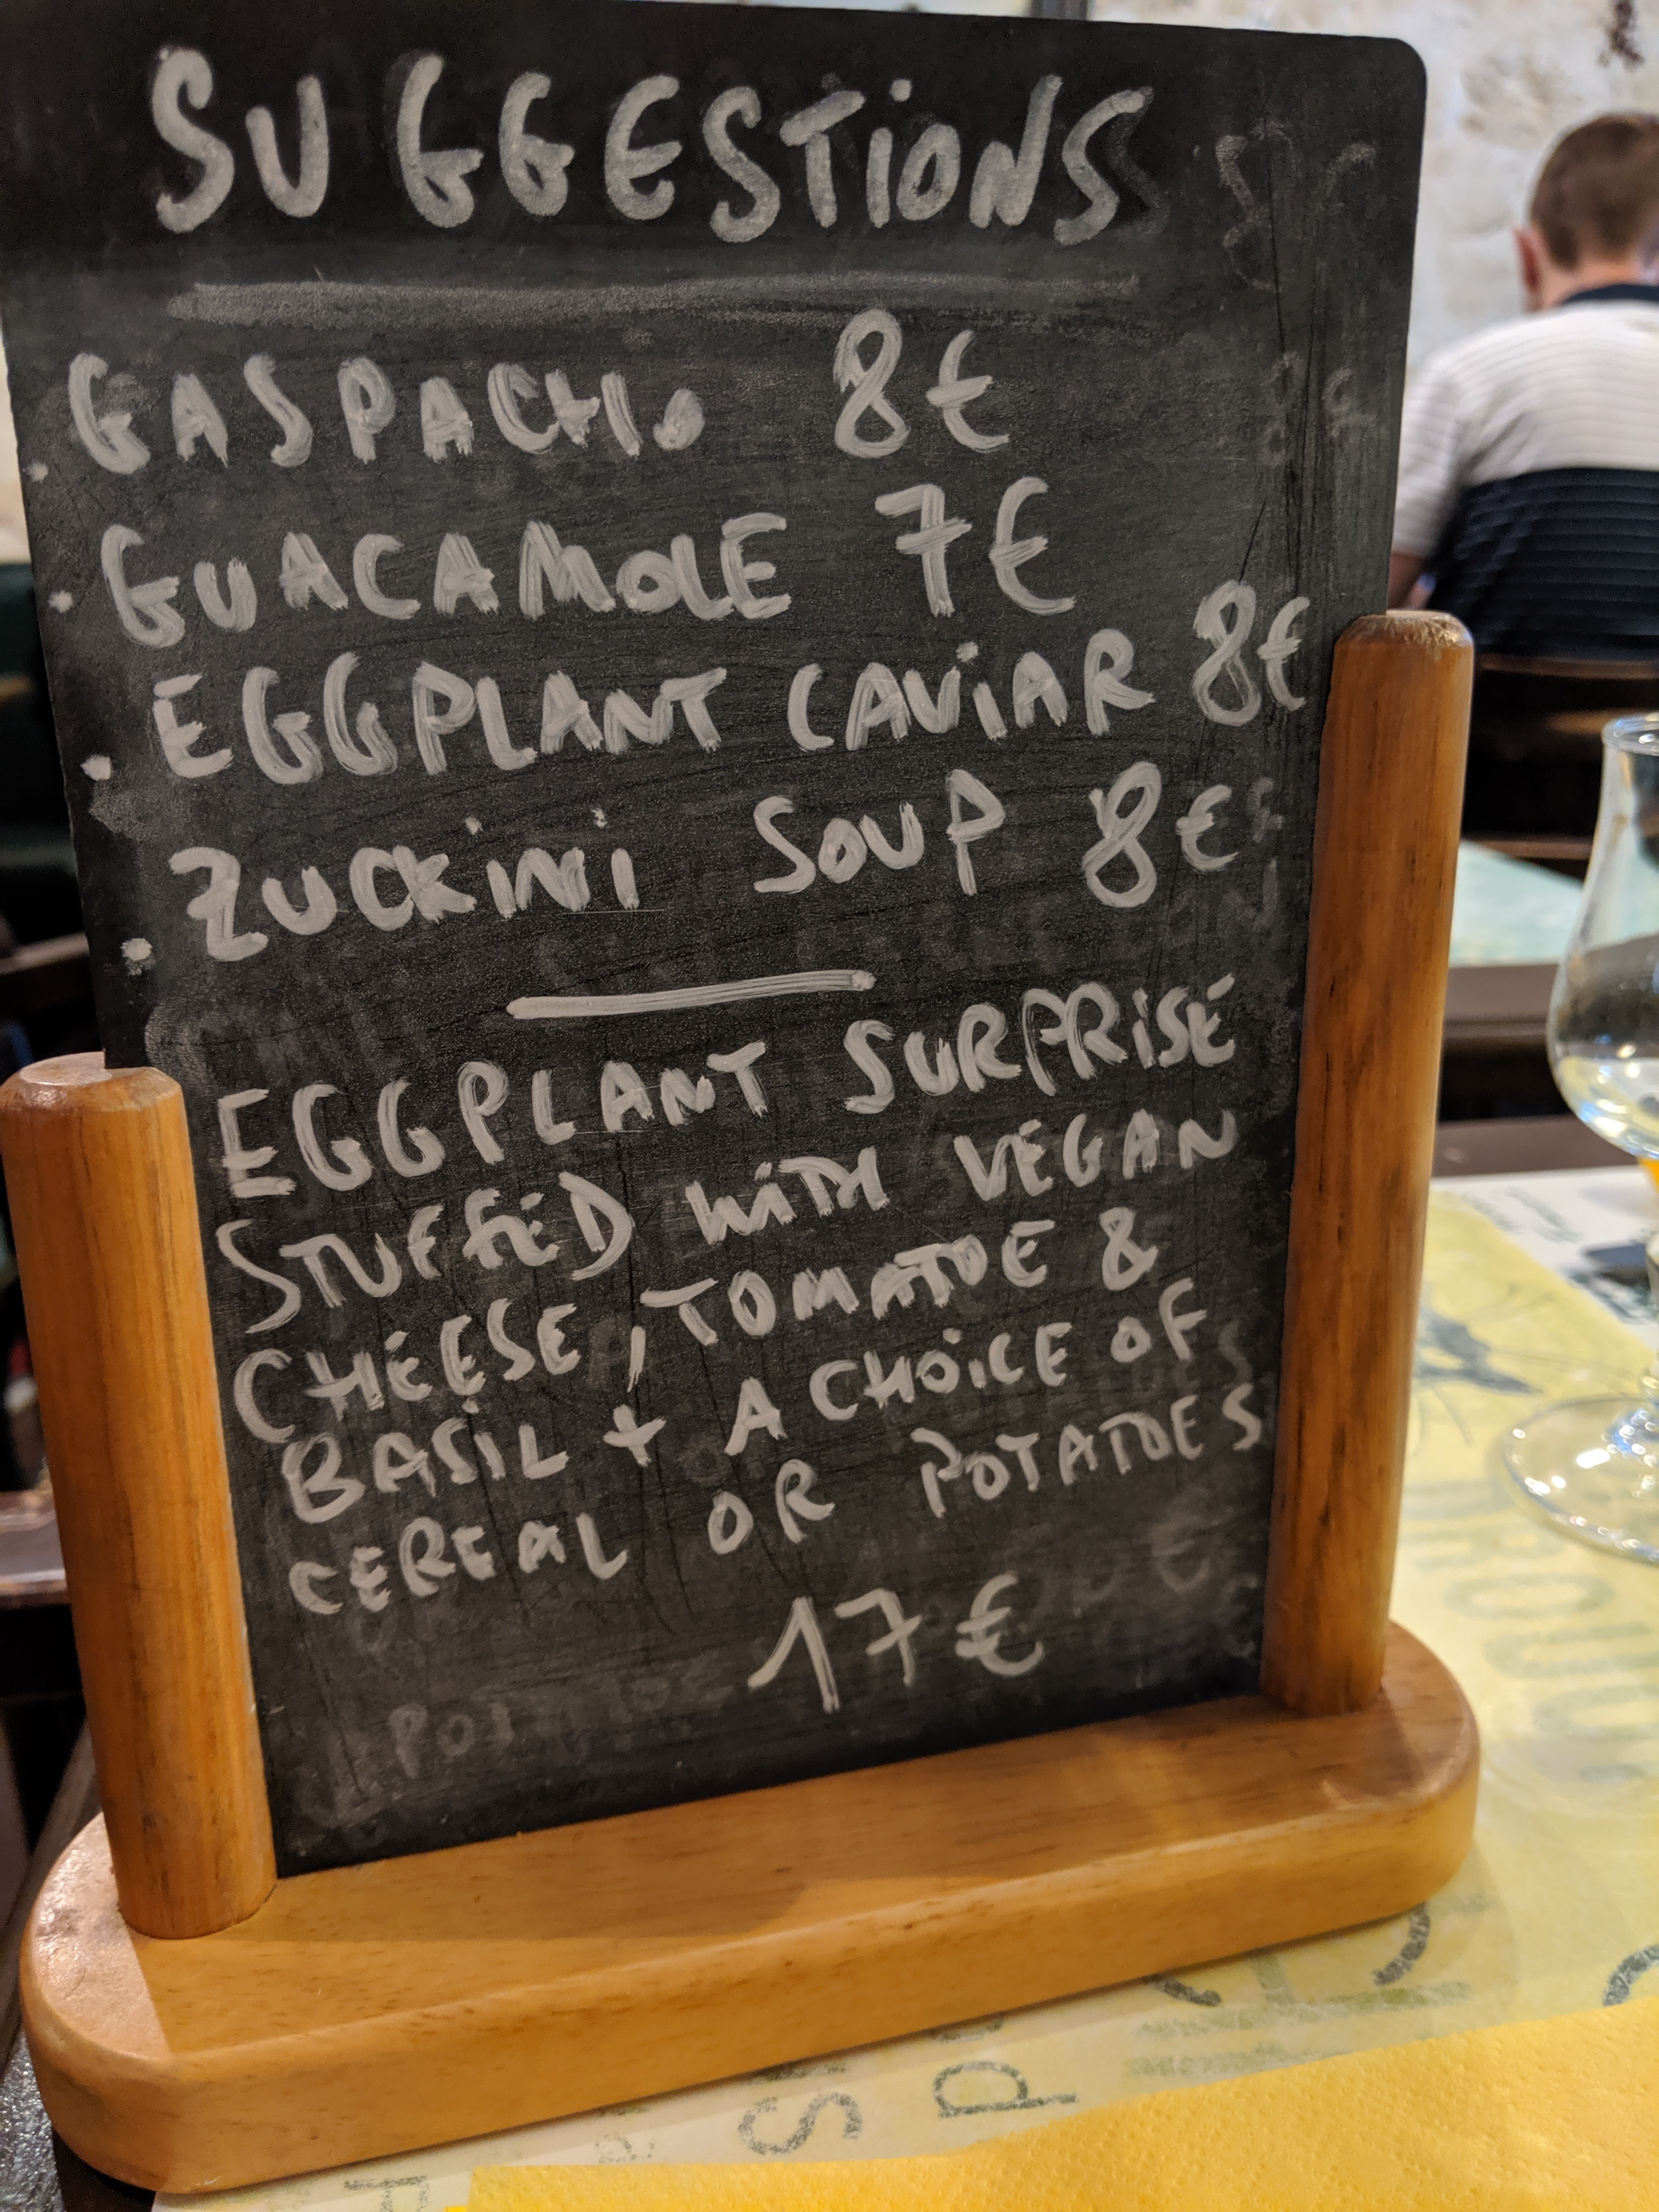 SUGGESTIONS
. GASPACHO 8€
. GUACAMOLE 7€
. EGGPLANT CAVIAR 8€
. ZUCKINI SOUP 8€
EGGPLANT SURPRISE
STUFFED WITH VEGAN
CHEESE, TOMATOE &
BASIL + A CHOICE OF
CEREAL OR POTATOES
17€